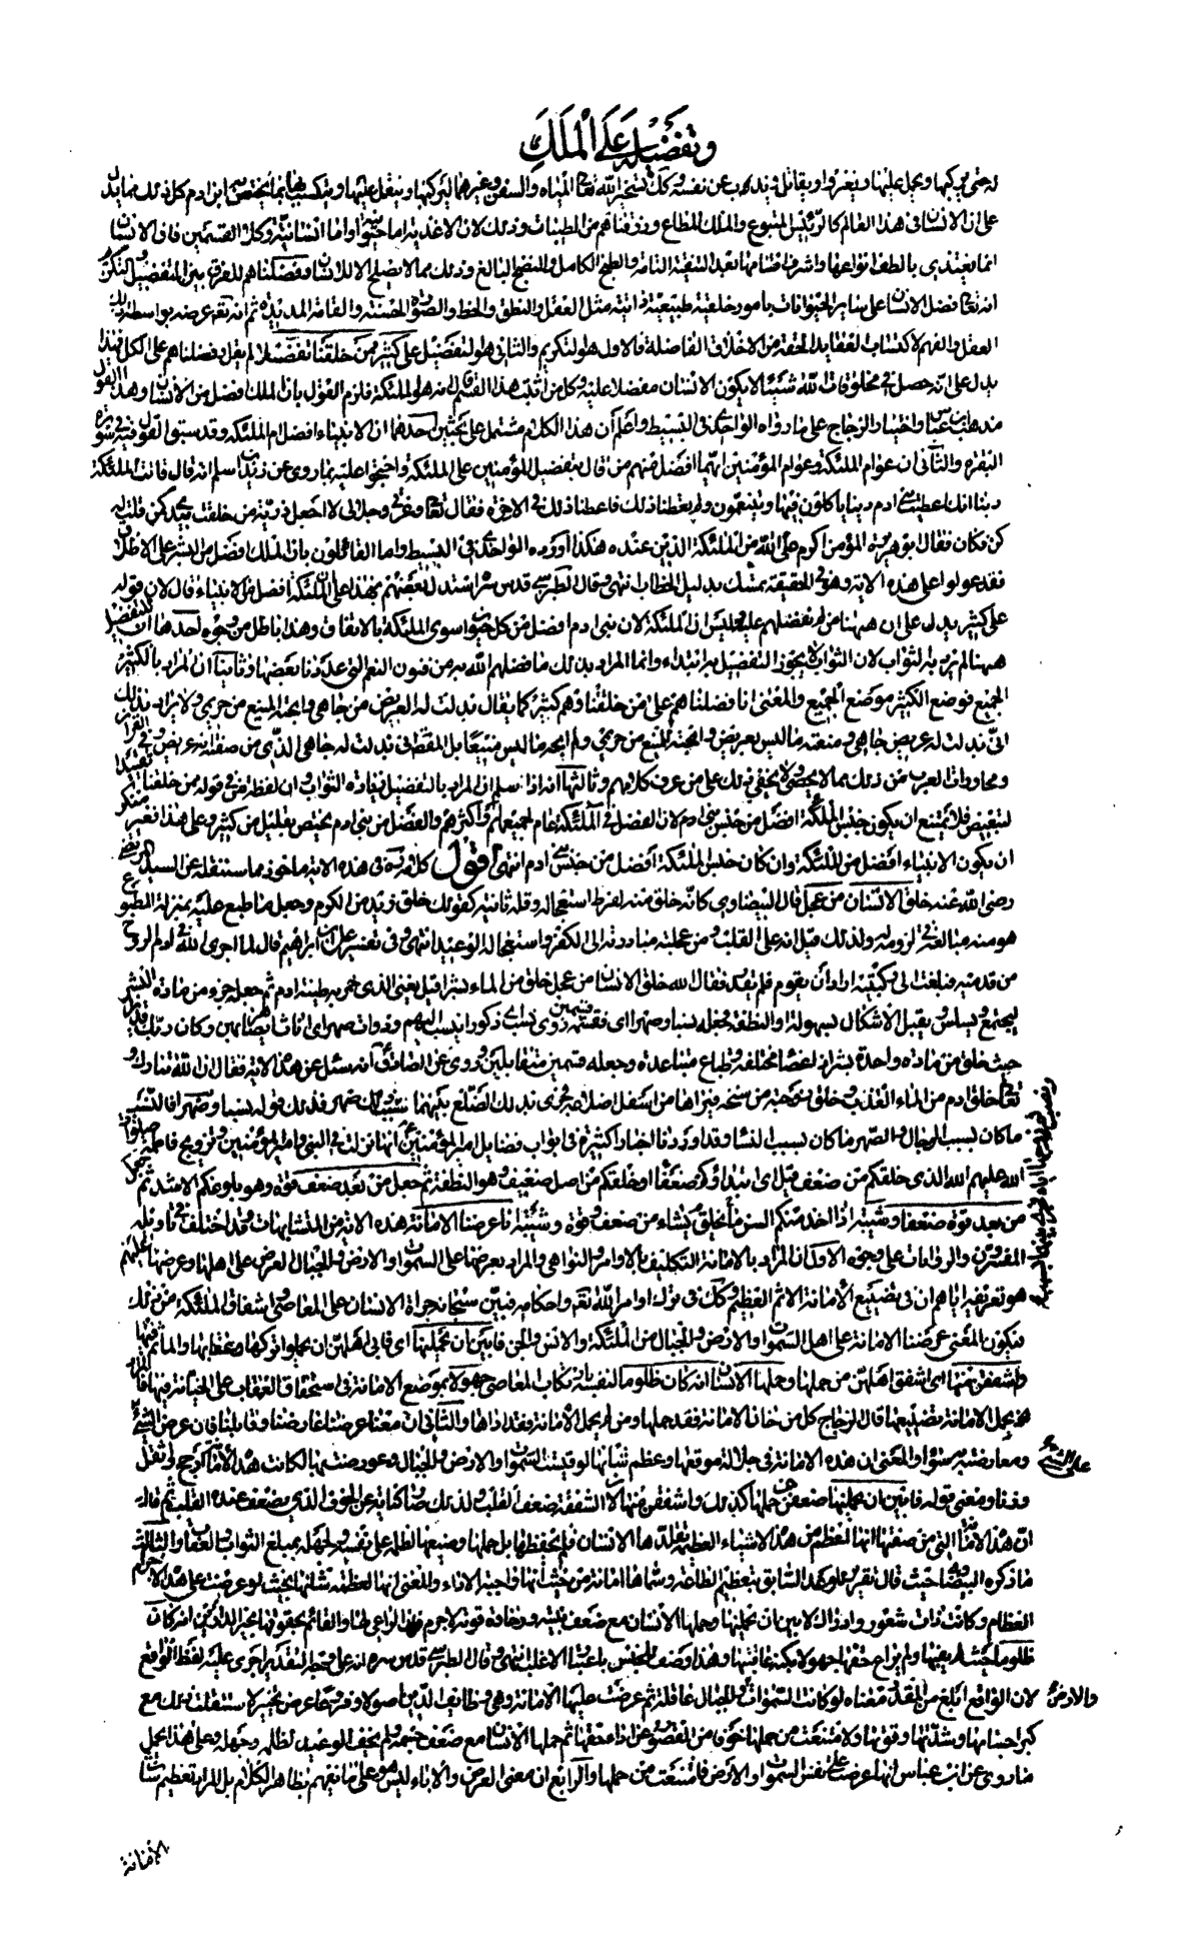 وتفضيله على الملك
له حتى يركبها ويحمل عليها ويغزوا ويقاتل ويذب عن نفسه وكك تسخير الله تعالى المياه والسفن وغيرهما ليركبها وينقل عليها ويتكسب بها مما يختص به ابن ادم كل ذلك مما يدل
على ان الانسان فى هذا العالم كالرئيس المتبوع والملك المطاع ورزقناهم من الطيبات وذلك لان الاغذية اما حيوانية واما انسانية وكلا القسمين فان الانسان
انما يغتذى بالطف انواعها واشرف اقسامها بعد التنقية التامة والطبخ الكامل والنضج البالغ وذلك مما لا يصلح الا للانسان وفضلناهم الفرق بين التفضيل والتكريم
انه تعالى فضل الانسان على ساير الحيوانات بامور خلقية طبيعية ذاتية مثل العقل والنطق والخط والصورة الحسنة والقامة المديدة ثم انه تعالى عرضه بواسطة ذلك
العقل والفهم لاكتساب العقايد الحقة من الاخلاق الفاضلة فالاول هو التكريم والثانى هو التفضيل على كثير ممن خلقنا تفضيلا لم يقل وفضلناهم على الكل فهذا
يدل على انه حصل فى مخلوقات الله شىء لا يكون الانسان مفضلا عليه وكل من اثبت هذا القسم قال انه هو الملئكة فلزم القول بان الملك افضل من الانسان وهذا القول
مذهب ابن عباس واختيار الزجاج على ما رواه الواحدى فى البسيط واعلم ان هذا الكلام مشتمل على بحثين احدهما ان الانبياء افضل ام الملئكة وقد سبق القول فيه فى سورة
البقرة والثانى ان عوام الملئكة وعوام المؤمنين ايهما افضل فمنهم من قال بتفضيل المؤمنين على الملئكة واحتجوا عليه بما روى عن زيد بن اسلم انه قال قالت الملئكة
ربنا انك اعطيت بنى ادم دنيا ياكلون فيها ويتنعمون ولم تعطنا ذلك فاعطنا ذلك فى الاخرة فقال تعالى وعزتى وجلالى لا اجعل ذرية من خلقت بيدى كمن قلت له
كن فكان فقال ابو هريرة المؤمن اكرم على الله من الملئكة الذين عنده هكذا اورده الواحدى فى البسيط واما القائلون بان الملك افضل من البشر على الاطلاق
فقد عولوا على هذه الاية وهو فى الحقيقة تمسك بدليل الخطاب انتهى وقال الطبرسى قدس سره استدل بعضهم بهذا على ان الملئكة افضل من الانبياء قال لان قوله
على كثير يدل على ان ههنا من لم يفضلهم عليه وليس الا الملئكة لان بنى ادم افضل من كل حيوان سوى الملئكة بالاتفاق وهذا باطل من وجوه احدها ان التفضيل
ههنا لم يرد به الثواب لان الثواب لا يجوز التفضيل به ابتداء وانما المراد بذلك ما فضلهم الله به من فنون النعم التى عددنا بعضها وثانيها ان المراد بالكثير
الجميع فوضع الكثير موضع الجميع والمعنى انا فضلناهم على من خلقنا وهم كثير كما يقال بذلت له العريض من جاهى وابحته المنيع من حريمى ولا يراد بذلك
انى بذلت له عريض جاهى ومنعته ما ليس بعريض وابحته المنيع من حريمى ولم ابحه ما ليس منيعا بل المقصود انى بذلت له جاهى الذى من صفته انه عريض وفى القران
ومحاورات العرب من ذلك ما لا يحصى ولا يخفى ذلك على من عرف كلامهم وثالثها انه اذا سلم ان المراد بالتفضيل زيادة الثواب وان لفظة من فى قوله ممن خلقنا تفيد
التبعيض فلا يمتنع ان يكون جنس الملئكة افضل من جنس بنى ادم لان الفضل فى الملئكة عام لجميعهم او اكثرهم والفضل من بنى ادم يختص بقليل من كثير وعلى هذا فغير منكر
ان يكون الانبياء افضل من الملئكة وان كان جنس الملئكة افضل من جنس بنى ادم انتهى اقول كلامه ره فى هذه الاية ماخوذ مما سننقله عن السيد المرتضى
رضى الله عنه خلق الانسان من عجل قال البيضاوى كانه خلق منه لفرط استعجاله وقلة ثانيه كقولك خلق زيد من الكرم وجعل ما طبع عليه بمنزلة المطبوع
هو منه مبالغة فى لزومه له ولذلك قيل انه على القلب ومن عجلته مبادرته الى الكفر واستعجال الوعيد انتهى وفى تفسير على بن ابراهيم قال لما اجرى الله فى ادم الروح
من قدميه فبلغت الى ركبتيه اراد ان يقوم فلم يقدر فقال الله خلق الانسان من عجل خلق من الماء بشرا قيل يعنى الذى خمر به طينة ادم ثم جعله جزء من مادة البشر
ليجتمع ويسلس ويقبل الاشكال بسهولة او النطفة فجعله نسبا وصهرا اى قسمه قسمين ذوى نسب اى ذكورا ينسب اليهم وذوات صهر اى اناثا يصاهر بهن وكان ربك قديرا
حيث خلق من مادة واحدة بشرا ذا اعضاء مختلفة وطباع متباعدة وجعله قسمين متقابلين وروى عن الصادق انه سئل عن هذه الاية فقال ان الله تبارك و
تعالى خلق ادم من الماء العذب وخلق زوجته من سنخه فبراها من اسفل اضلاعه فجرى بذلك الضلع بينهما سبب ونسب ثم زوجها اياه فجرى بينهما بسبب ذلك صهر فذلك قوله نسبا وصهرا فالنسب
ما كان بسبب الرجال والصهر ما كان بسبب النساء وقد اوردنا اخبارا كثيرة فى ابواب فضايل امير المؤمنين ع انها نزلت فى النبى وامير المؤمنين وتزويج فاطمة صلوات
الله عليهم الله الذى خلقكم من ضعف قيل اى ابتداؤكم ضعفا او خلقكم من اصل ضعيف وهو النطفة ثم جعل من بعد ضعف قوة وهو بلوغكم الاشد ثم جعل
من بعد قوة ضعفا وشيبة اذا اخذ منكم السن ما يخلق ما يشاء من ضعف وقوة وشيبة انا عرضنا الامانة هذه الاية من المتشابهات وقد اختلف فى تاويله
المفسرين والروايات على وجوه الاول ان المراد بالامانة التكليف بالاوامر والنواهى والمراد بعرضها على السموات والارض والجبال العرض على اهلها وعرضها عليهم
هو تعريفه اياهم ان فى تضييع الامانة الاثم العظيم وكك فى ترك اوامر الله تعالى واحكامه فبين سبحانه جراة الانسان على المعاصى واشفاق الملئكة من ذلك
فيكون المعنى عرضنا الامانة على اهل السموات والارض والجبال من الملئكة والانس والجن فابين ان يحملنها اى فابى اهلهن ان يحملوا تركها وعقابها والماثم فيها
واشفقن منها اى اشفق اهلهن من حملها وحملها الانسان انه كان ظلوما لنفسه بارتكاب المعاصى جهولا بموضع الامانة فى استحقاق العقاب على الخيانة فيها فالمراد
بحمل الامانة تضييعها قال الزجاج كل من خان الامانة فقد حملها ومن لم يحمل الامانة فقد اداها والثانى ان معنى عرضنا عارضنا وقابلنا فان عرض الشىء
على الشىء ومعارضته به سواء والمعنى ان هذه الامانة فى جلالة موقعها وعظم شانها لو قيست السموات والارض والجبال وعورضت بها لكانت هذه الامانة ارجح واثقل
وزنا ومعنى قوله فابين ان يحملنها ضعفن عن حملها كذلك واشفقن منها لان الشفقة ضعف القلب ولذلك صار كناية عن الخوف الذى يضعف عنده القلب ثم قال
ان هذه الامانة التى من صفتها انها اعظم من هذه الاشياء العظيمة تقلدها الانسان فلم يحفظها بل حملها وضيعها لظلمه على نفسه ولجهله بمبلغ الثواب والعقاب والثالث
ما ذكره البيضاوى حيث قال تقرير للوعد السابق بتعظيم الطاعة وسماها امانة من حيث انها واجبة الاداء والمعنى انها لعظمة شانها بحيث لو عرضت على هذه الاجرام
العظام وكانت ذات شعور وادراك لابين ان يحملنها وحملها الانسان مع ضعف بنيته ورخاوة قوته لا جرم فاز الراعى لها والقائم بحقوقها بخير الدارين انه كان
ظلوما حيث لم يف بها ولم يراع حقها جهولا بكنه عاقبتها وهذا وصف للجنس باعتبار الاغلب انتهى وقال الطبرسى قدس سره انه على وجه التقدير اجرى عليه لفظ الواقع
لان الواقع ابلغ من المقدر معناه لو كانت السموات والارض والجبال عاقلة ثم عرضت عليها الامانة وهى وظايف الدين اصولا وفروعا عرض تخيير لاستثقلت ذلك مع
كبر اجسامها وشدتها وقوتها ولامتنعت من حملها خوفا من القصور عن اداء حقها ثم حملها الانسان مع ضعف جسمه ولم يخف الوعيد لظلمه وجهله وعلى هذا يحمل
ما روى عن ابن عباس انها عرضت على نفس السموات والارض فامتنعت من حملها والرابع ان معنى العرض والاباء ليس هو على ما يفهم بظاهر الكلام بل المراد تعظيم شان
الامانة